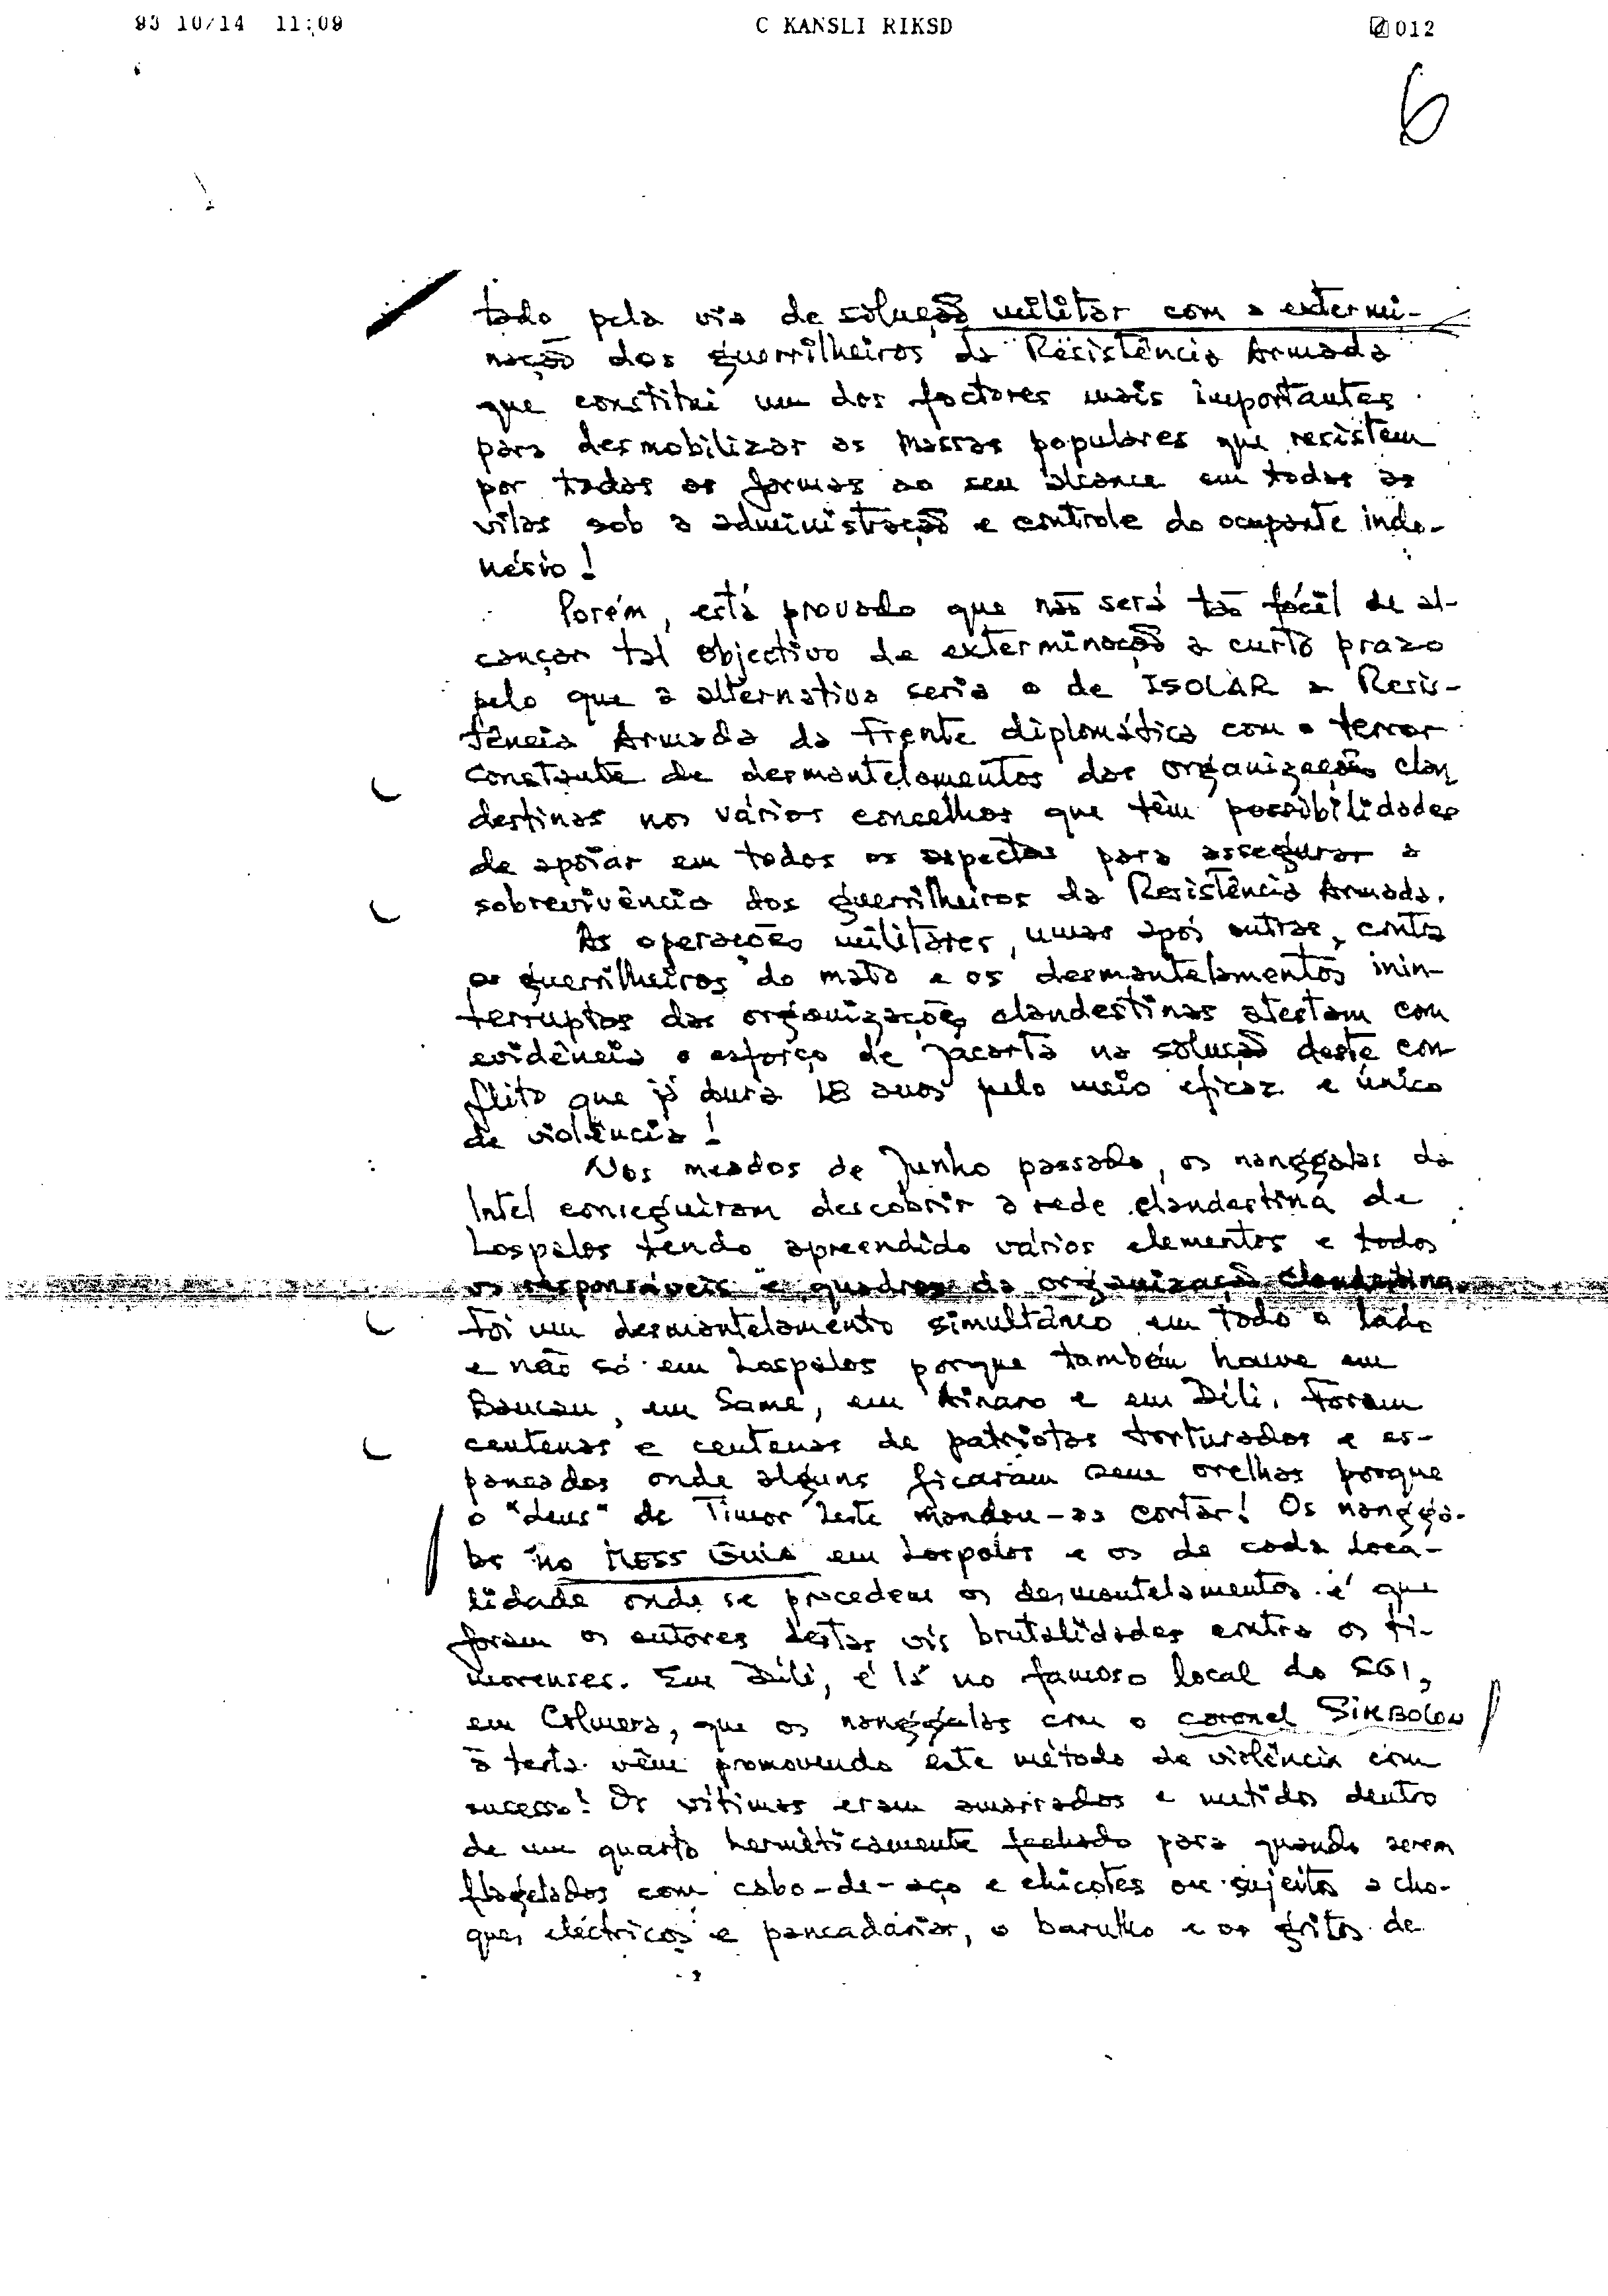 93 10/14 11:09 C KANSLI RIKSD 012
6
tado pela via de solução militar com a extermi-
nação dos guerrilheiros da Resistência Armada
que constitui um dos factores mais importantes
para desmobilizar as massas populares que resistem
por todas as formas ao seu alcance em todas as
vilas sob a administração e controle do ocupante indo-
nésio!
Porém, está provado que não será tão fácil de al-
cançar tal objectivo de exterminação a curto prazo
pelo que a alternativa seria o de ISOLAR a Resis-
tência Armada da Frente diplomática com o terror
constante de desmantelamentos das organizações clan
destinas nos vários concelhos que têm possibilidades
de apoiar em todos os aspectos para assegurar a
sobrevivência dos guerrilheiros da Resistência Armada.
As operações militares, umas após outras, contra
os guerrilheiros do mato e os desmantelamentos inin-
terruptos das organizações clandestinas atestam com
evidência o esforço de Jacarta na solução deste con
flito que já dura 18 anos pelo meio eficaz e único
de violência!
Nos meados de Junho passado, os nanggalas da
Intel conseguiram descobrir a rede clandestina de
Lospalos tendo apreendido vários elementos e todos
os responsáveis e quadros da organização clandestina.
Foi um desmantelamento simultâneo em todo o lado
e não só em Lospalos porque também houve em
Baucau, em Same, em Ainaro e em Dili. Foram
centenas e centenas de patriotas torturados e es-
pancados onde alguns ficaram sem orelhas porque
o "deus" de Timor Leste mandou-as cortar! Os nangga-
las no MESS Guia em Lospalos e os de cada loca-
lidade onde se procedem os desmantelamentos é que
foram os autores destas vis brutalidades contra os ti-
morenses. Em Díli, é lá no famoso local do SGI,
em Colmera, que os nanggalas com o coronel SIMBOLON
à testa vêm promovendo este método de violência com
sucesso! As vítimas eram amarradas e metidas dentro
de um quarto hermèticamente fechado para quando serem
flagelados com cabo-de-aço e chicotes ou sujeitos a cho-
ques eléctricos e pancadarias, o barulho e os gritos de